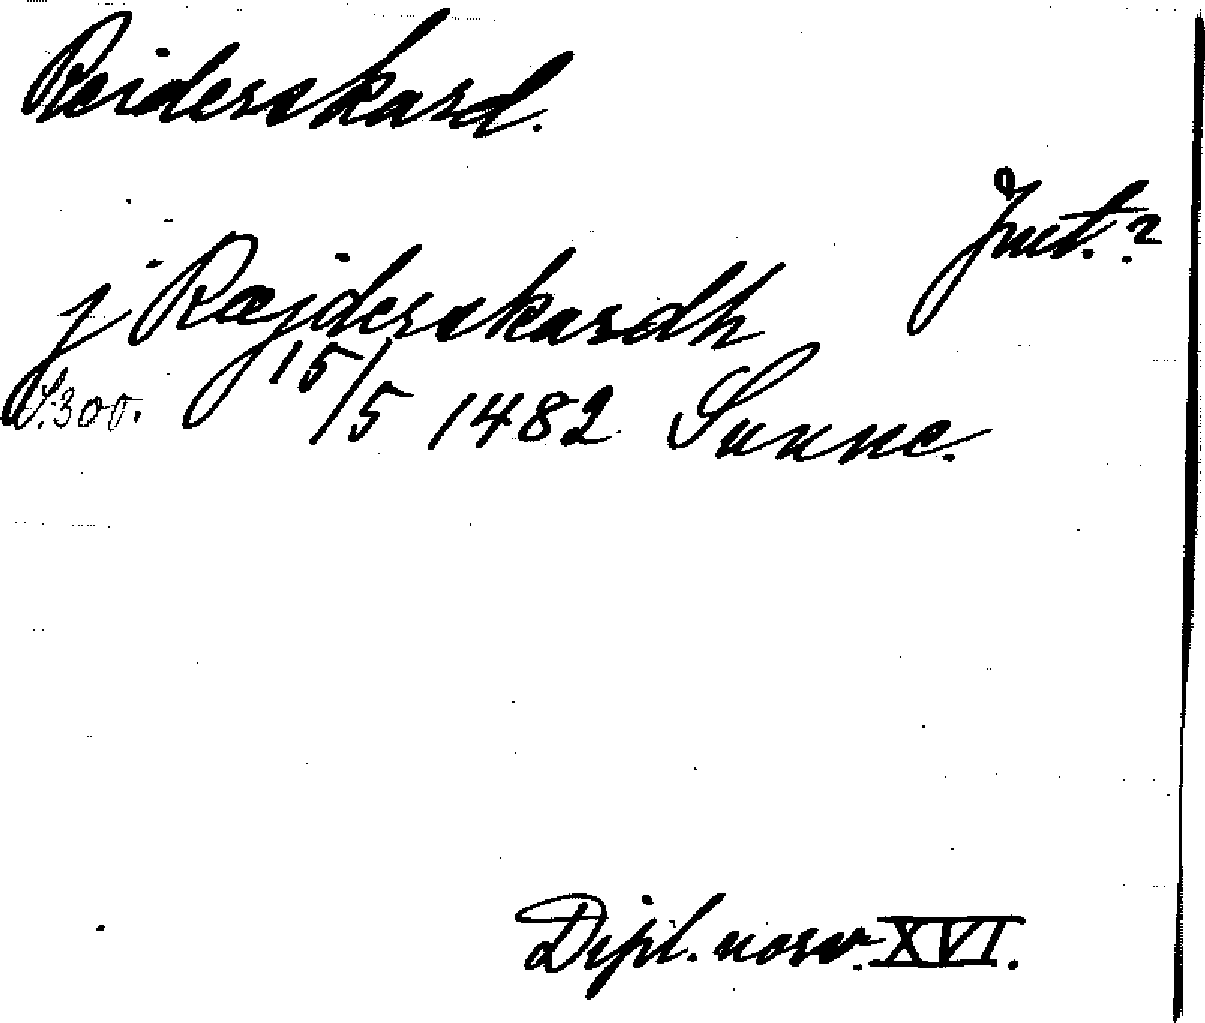 Reiderskard.
Jmt.?
j Ræjderskardh
S. 300. 15/5 1482 Sunne.
Dipl. norv. XVI.